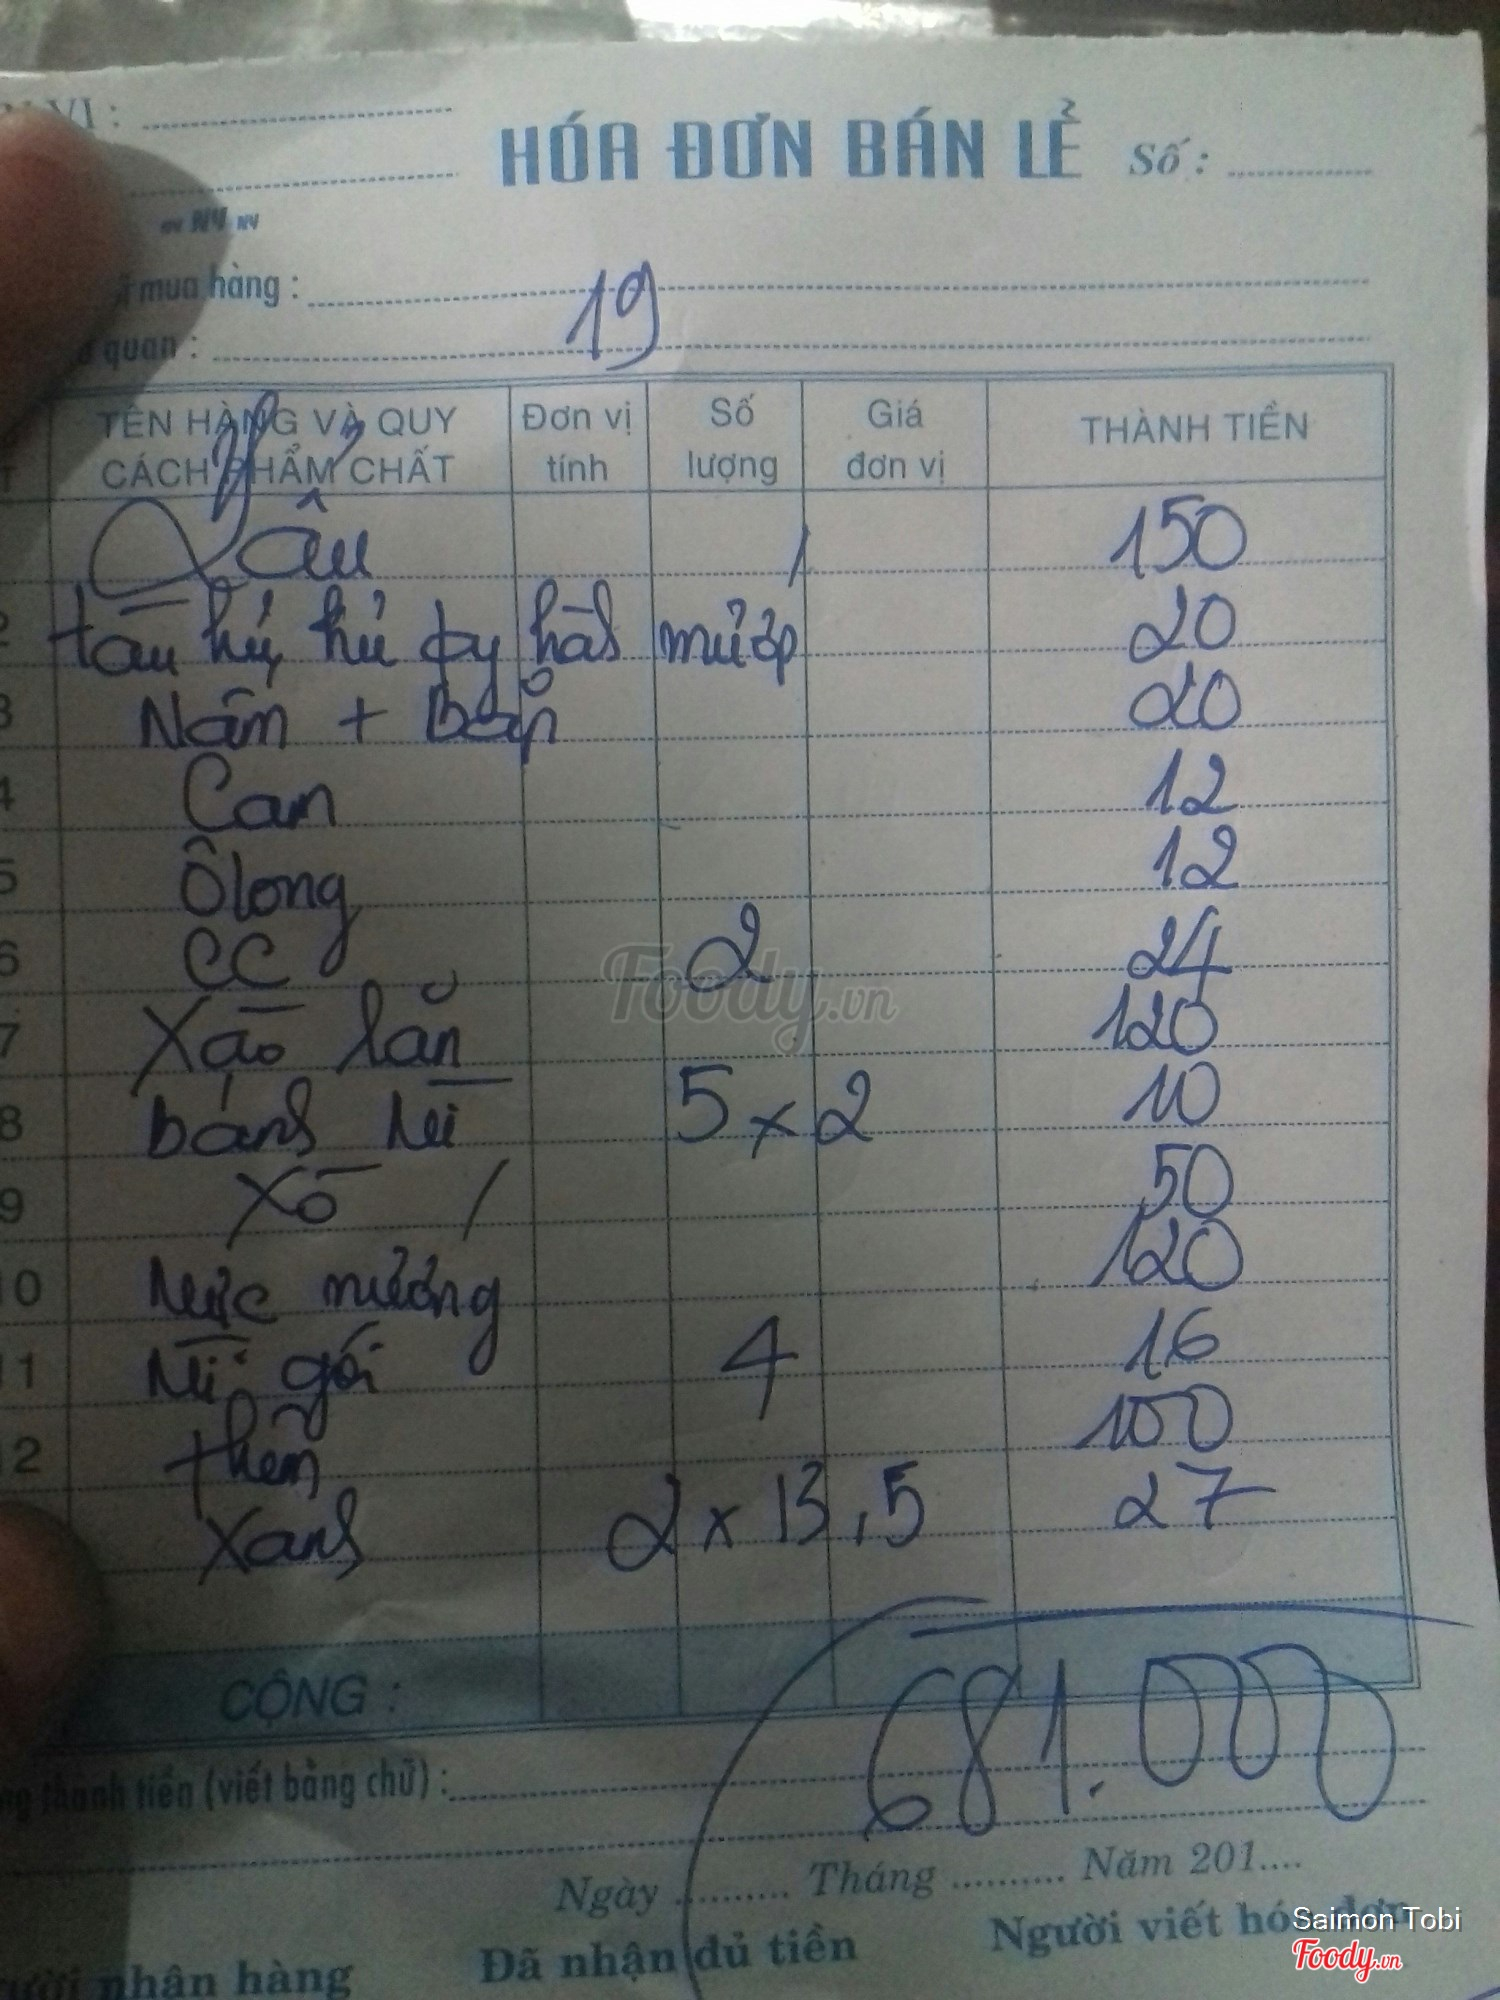 VI :
HÓA ĐƠN BÁN LẺ Số :
mua hàng : 19
quan :
TÊN HÀNG VÀ QUY CÁCH PHẨM CHẤT Đơn vị tính Số lượng Giá đơn vị THÀNH TIỀN
Lẩu 1 150
2 tàu hủ, hủ ky 20
3 Nấm + Bắp 20
4 Cam 12
5 Ôlong 12
6 CC 2 24
7 Xào lăn 120
8 bánh mì 5 x 2 10
9 Xô / 50
10 Mực nướng 120
11 Mì gói 4 16
12 thêm 100
Xanh 2 x 13,5 27
CỘNG : 681.000
thành tiền (viết bằng chữ) :
Ngày Tháng Năm 201
nhận hàng Đã nhận đủ tiền Người viết hóa đơn
Foody.vn
Saimon Tobi
Foody.vn